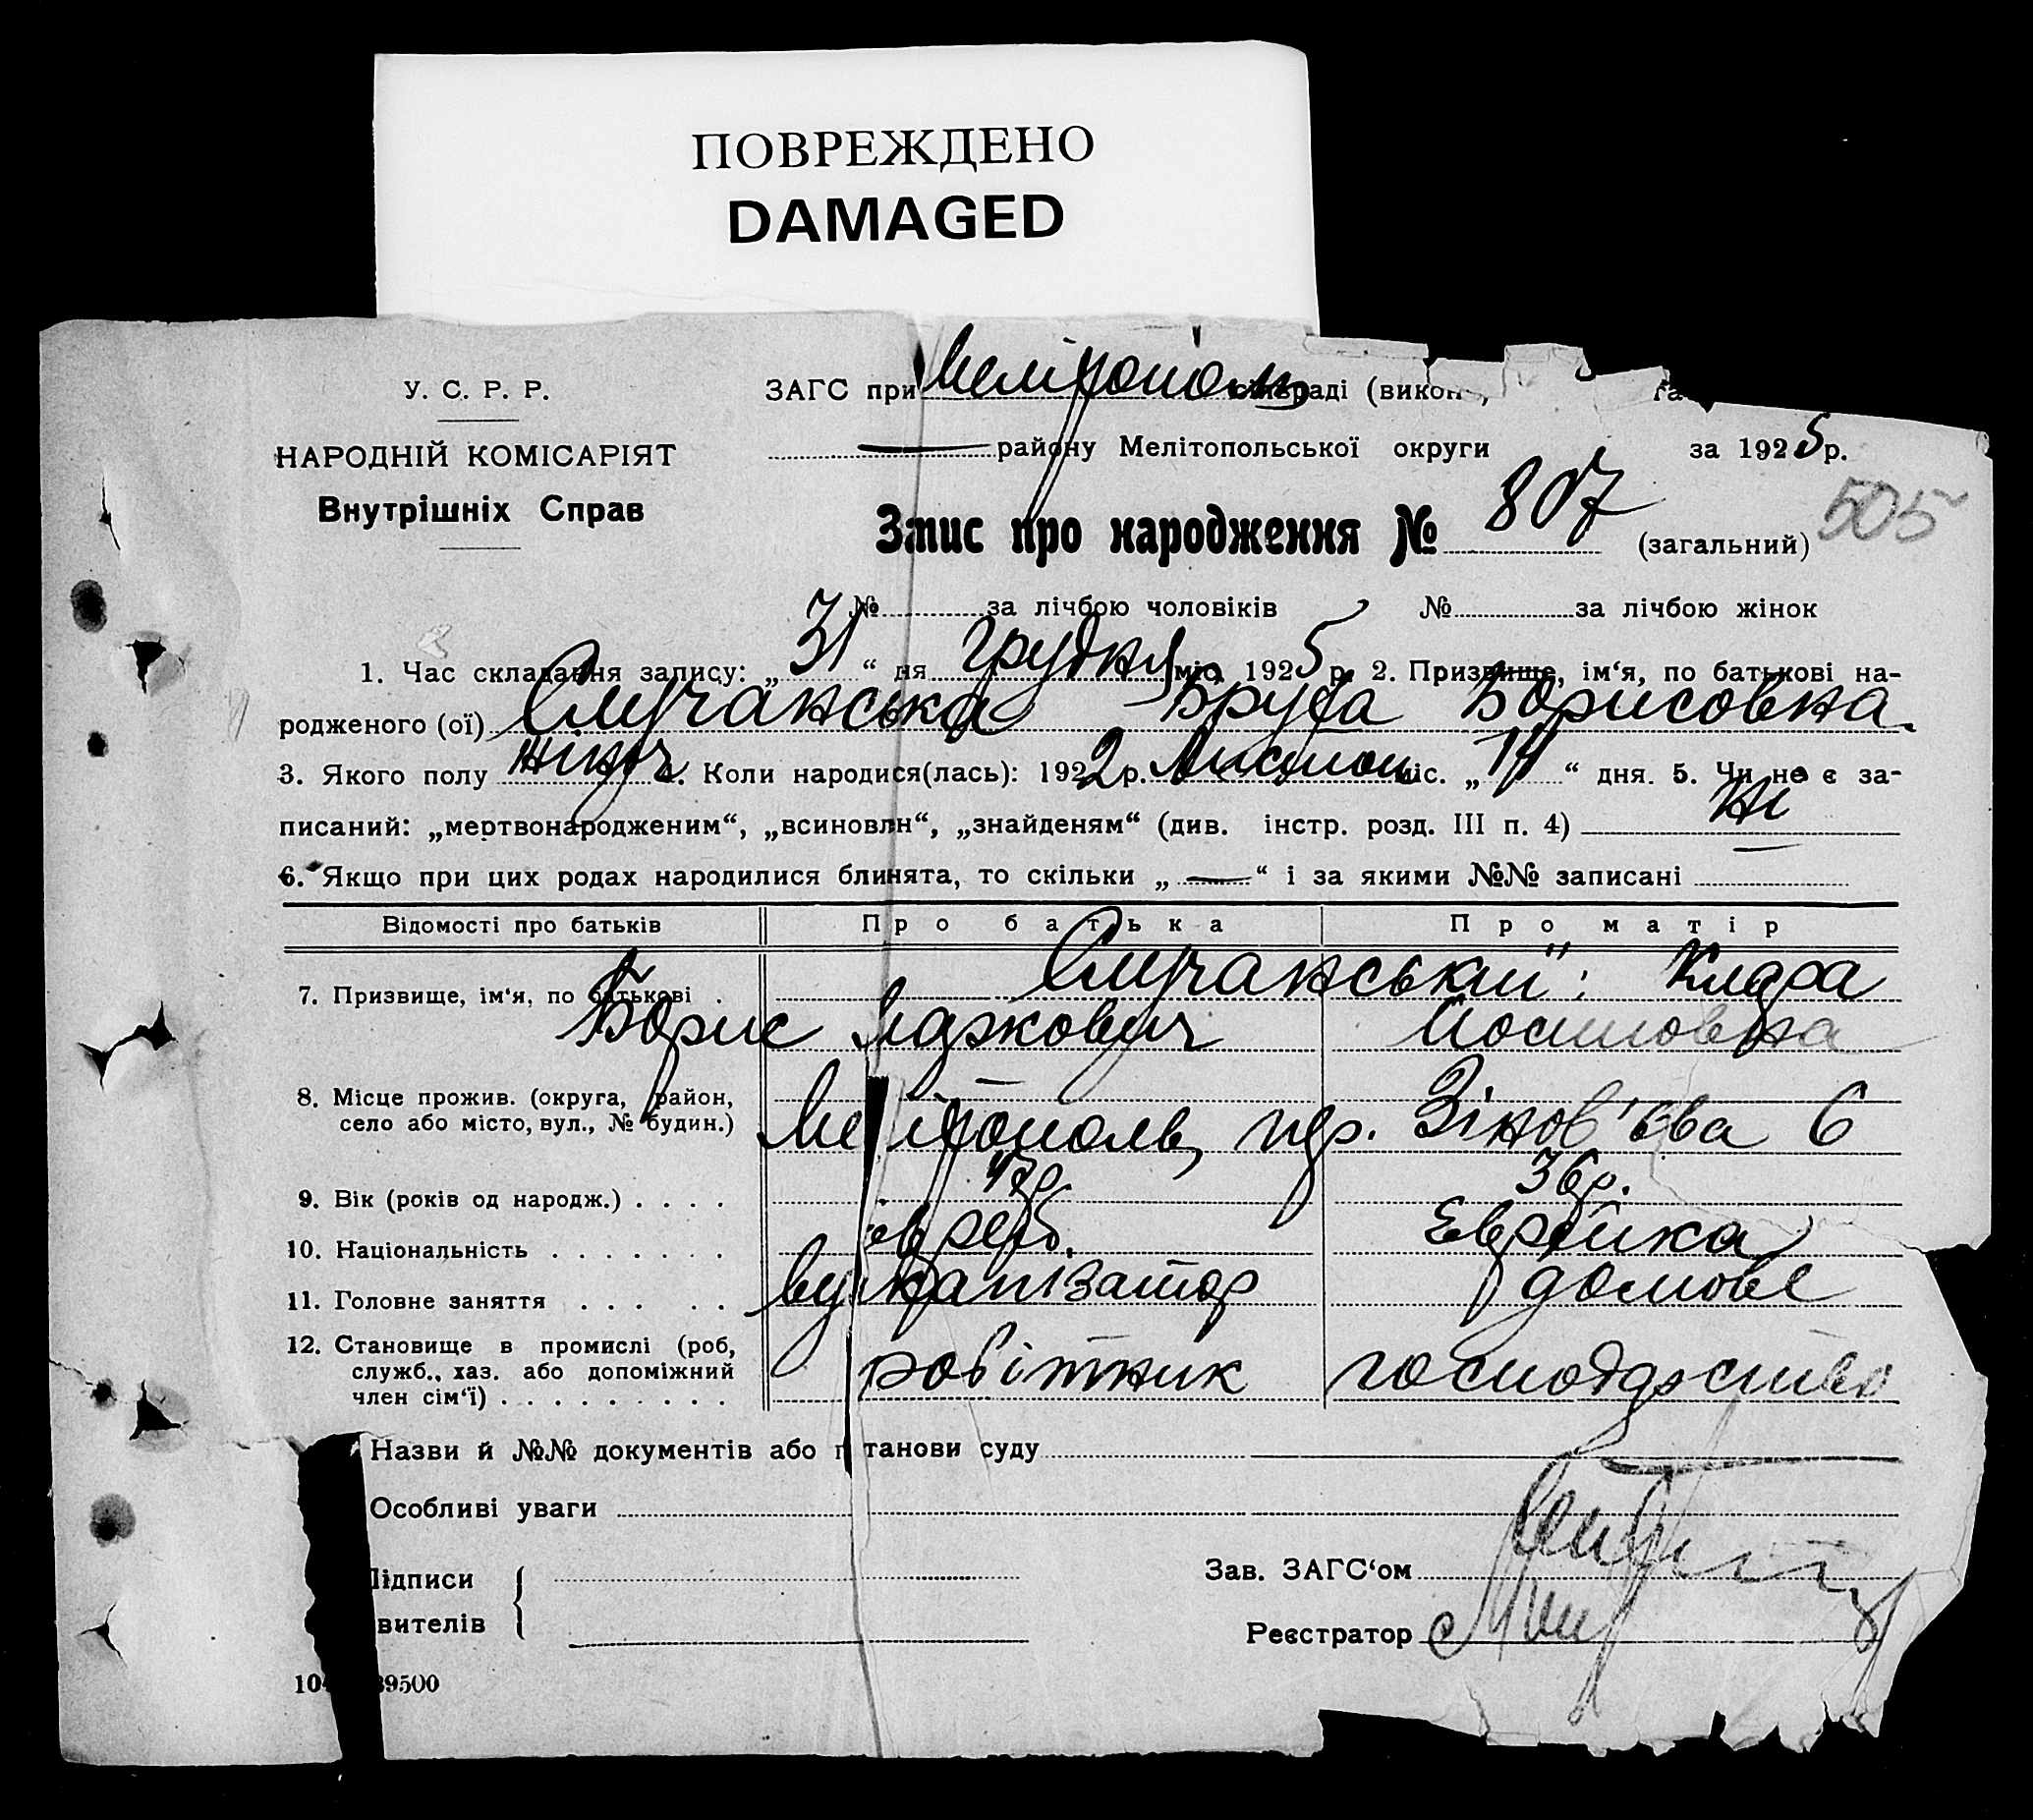 ПОВРЕЖДЕНО
DAMAGED
У. С. Р. Р.
НАРОДНІЙ КОМІСАРІЯТ
Внутрішніх Справ
ЗАГС при Мелітополь
району Мелітопольської округи за 1925 р.
Запис про народження № 807 (загальний) 505
№ за лічбою чоловіків № за лічбою жінок
1. Час складання запису: „31“ дня грудня міс. 1925 р. 2. Призвище, ім‘я, по батькові на-
родженого (ої) Случанська Борисовна
3. Якого полу жіноч 4. Коли народися(лась): 1922 р. Листоп міс. „14“ дня. 5. Чи не є за-
писаний: „мертвонародженим“, „всиновлн“, „знайденям“ (див. інстр. розд. III п. 4) Ні
6. Якщо при цих родах народилися блинята, то скільки „—“ і за якими №№ записані
Відомості про батьків Про батька Про матір
7. Призвище, ім‘я, по батькові Случанський: Клара
Борис Маркович Йосиповна
8. Місце прожив. (округа, район,
село або місто, вул., № будин.) Мелітополь, пер. Зінов'єва 6
9. Вік (років од народж.) . . . . 36 р.
10. Національність . . . . . . . Еврейка
11. Головне заняття . . . . . вулканізатор домове
12. Становище в промислі (роб,
служб., хаз. або допоміжний
член сім‘ї) . . . . . . . . . робітник господарство
Назви й №№ документів або п танови суду
Особливі уваги
Підписи
вителів
Зав. ЗАГС‘ом
Реєстратор
10 39500